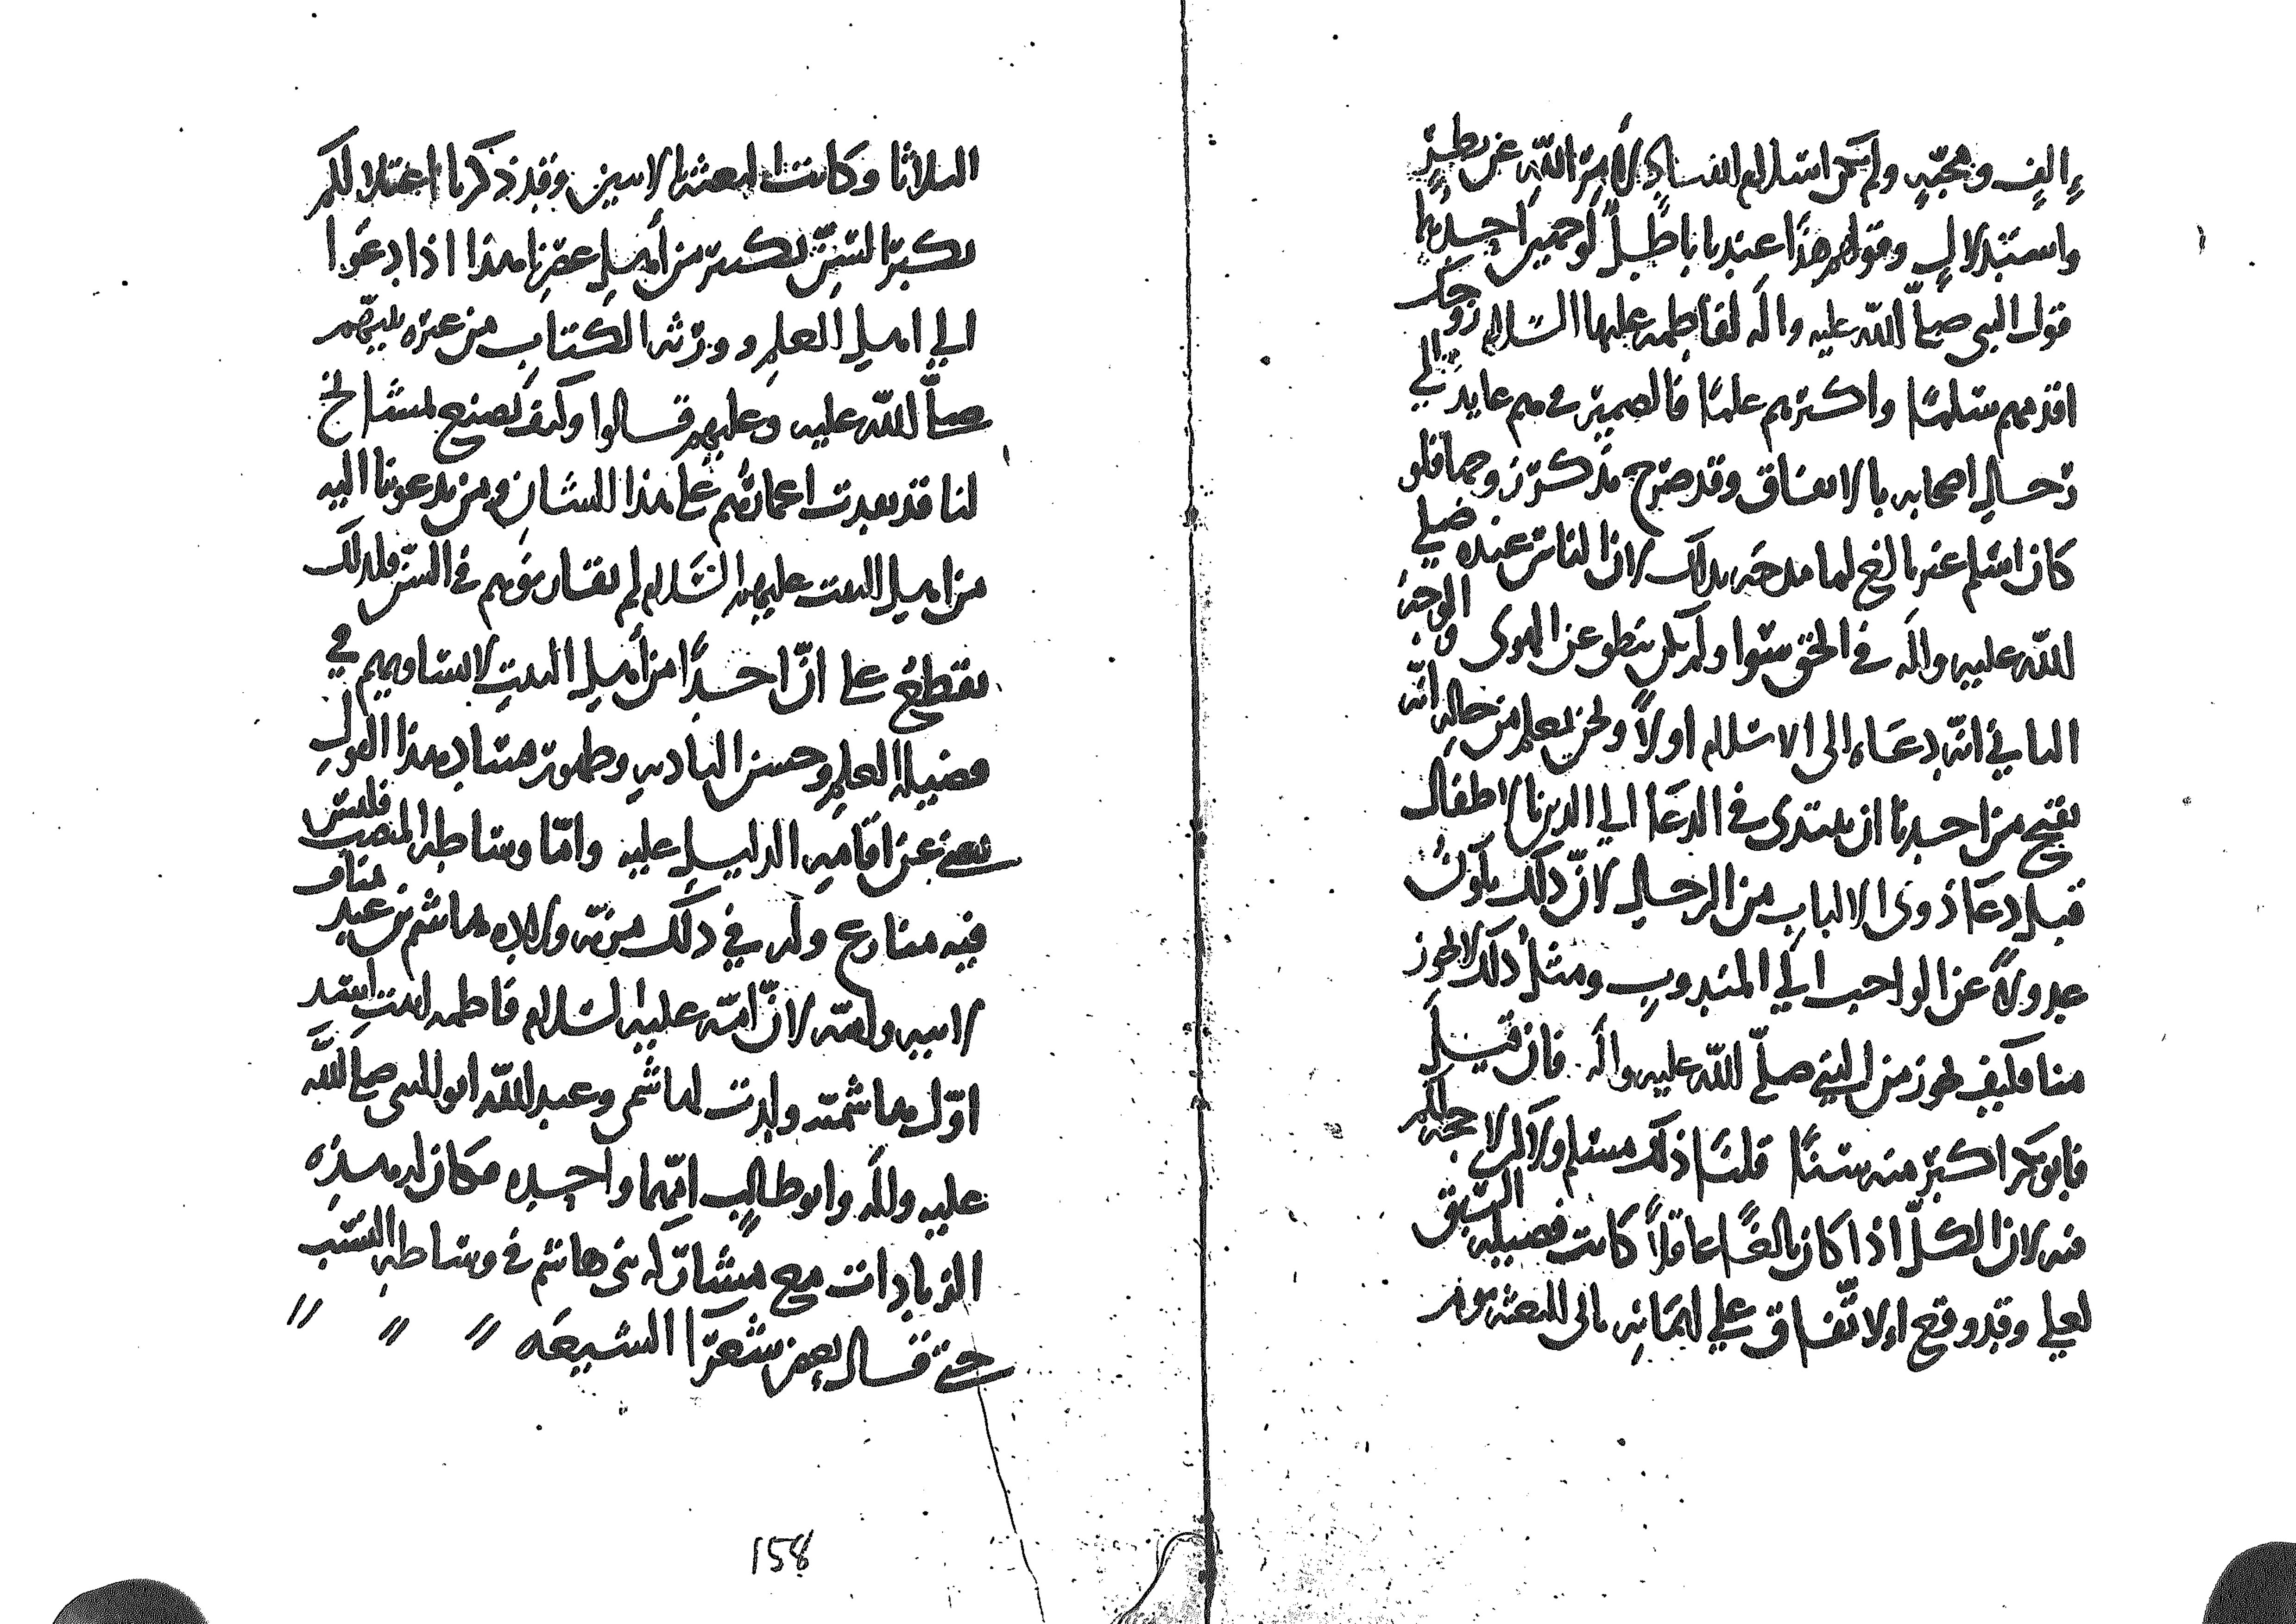 إلف ومحبّه ولم يكن اسلام الفساد لأمر الله عن نظر
واستدلال وقولهم هذا عندنا باطل لوجهين احدهما
قول النبي صلى الله عليه واله لفاطمه عليها السلام زوجتك
اقدمهم سلما واكثرهم علما فالضمير في هم عايد الى
اصحابه بالاتفاق وقد صرح بذكر زوجها فلو
كان اسلم غير بالغ لما مدحه بذلك لان الناس عنده صلى
الله عليه واله في الحق سوا ولم يكن ينطق عن الهوى والوجه
الثاني انه دعاه الى الاسلام اولا ونحن نعلم من حاله انه
يقبح من احدنا ان يبتدى في الدعا الى الدين بالاطفال
قبل دعا ذوى الالباب من الرجال لان ذلك يكون
عدولا عن الواجب الى المندوب ومثل ذلك لا يجوز
منا فكيف يجوز من النبي صلى الله عليه واله فان قيل
فابو بكر اكبر منه سنا قلنا ذلك مسلم ولا حجه لكم
فيه لان الكل اذا كان بالغا عاقلا كانت فضيله السبق
لعلي وقد وقع الاتفاق على ايمانه ثانى المبعث يوم
الثلاثا وكانت المبعث يالاثنين وقد ذكرنا اعتلالكم
بكبر السن يكثر من أهل عصرنا هذا اذا دعوا
الى اهل العلم وورثه الكتاب من عتره نبيهم
صلى الله عليه وعليهم قالوا وكيف نصنع بمشايخ
لنا قد نفدت اعمارهم على هذا الشان ومن يدعوننا اليه
من اهل البيت عليهم السلام لم يقاربوهم في السن فلذلك
نقطع على ان احدا من أهل البيت لا يساويهم في
فضيله العلم وحسن التاديه وظهور فساد هذا القول
يغني عن اقامه الدليل عليه واما وساطه المنصب فليس
فيه منازع وله في ذلك مزيه ولاده هاشم بن عبد مناف
لابيه ولامه لان امه عليه السلام فاطمه ابنت اسد
اول هاشميه ولدت لهاشمي وعبد الله ابو النبي صلى الله
عليه واله وابو طالب امهما واحده فكان له بهذه
الزيادات مع مشاركه بني هاشم في وساطه النسب
حتى قال بعض شعرا الشيعه
158